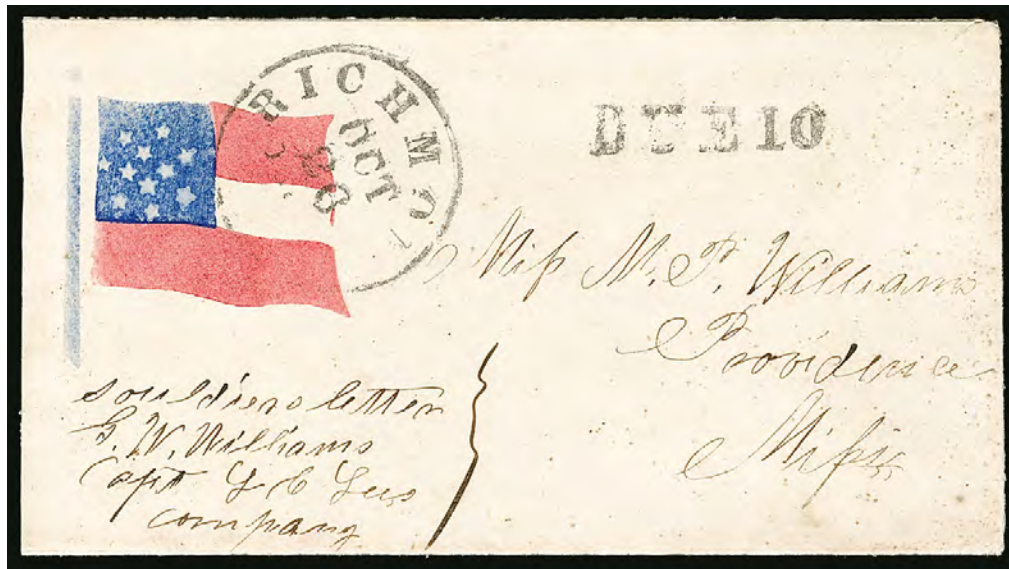 RICHMO
OCT
DUE 10
Miss M. P. Williams
Providence
Miss
souldiers letter
G. W. Williams
capt
company